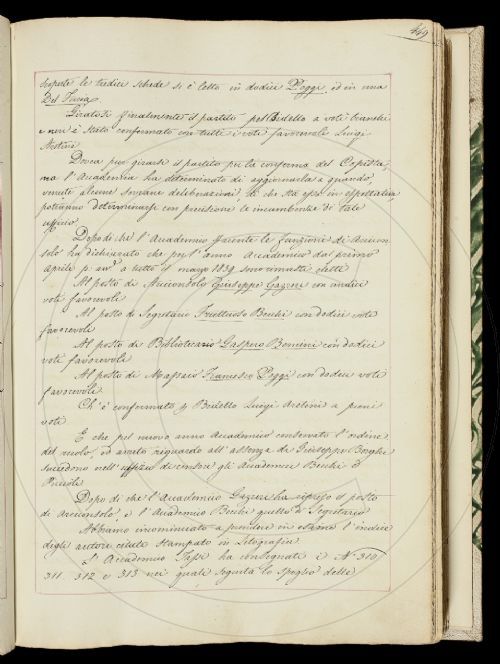 469
scoperte le tredici schede si è letto in dodici Poggi ed in una
Del Furia.
Giratosi finalmente il partito pel Bidello a voti bianchi
e neri è stato confermato con tutti i voti favorevoli Luigi
Aretini
Dovea pur girarsi il partito per la conferma del Copista,
ma l'Accademia ha determinato di aggiornarla a quando
venute alcune sovrane deliberazioni, di che sta essa in aspettativa
potranno determinarsi con precisione le incumbenze di tale
ufficio.
Dopo di che l'Accademico facente le funzioni di Arcicon
solo ha dichiarato che per l'anno Accademico dal primo
Aprile a tutto marzo 1839 sono rimasti eletti
Al posto di Arciconsolo Giuseppe Gazzeri con undici
voti favorevoli
Al posto di Segretario Fruttuoso Becchi con dodici voti
favorevoli
Al posto di Bibliotecario Gaspero Bencini con dodici
voti favorevoli
Al posto di Massaio Francesco Poggi con dodici voti
favorevoli
Ch'è confermato Bidello Luigi Aretini a pieni
voti
E che pel nuovo anno Accademico conservato l'ordine
del ruolo, ed avuto riguardo all'assenza di Giuseppe Borghi
succedono nell'uffizio di censore gli Accademici Becchi e
Piccioli
Dopo di che l'Accademico Gazzeri ha ripreso il posto
di Arciconsolo, e l'Accademico Becchi quello di Segretario
Abbiamo incominciato a prendere in esame l'indice
degli autori citati stampato in Litografia
L'Accademico Tassi ha consegnati i N. 310
311. 312 e 313 nei quali seguita lo spoglio delle